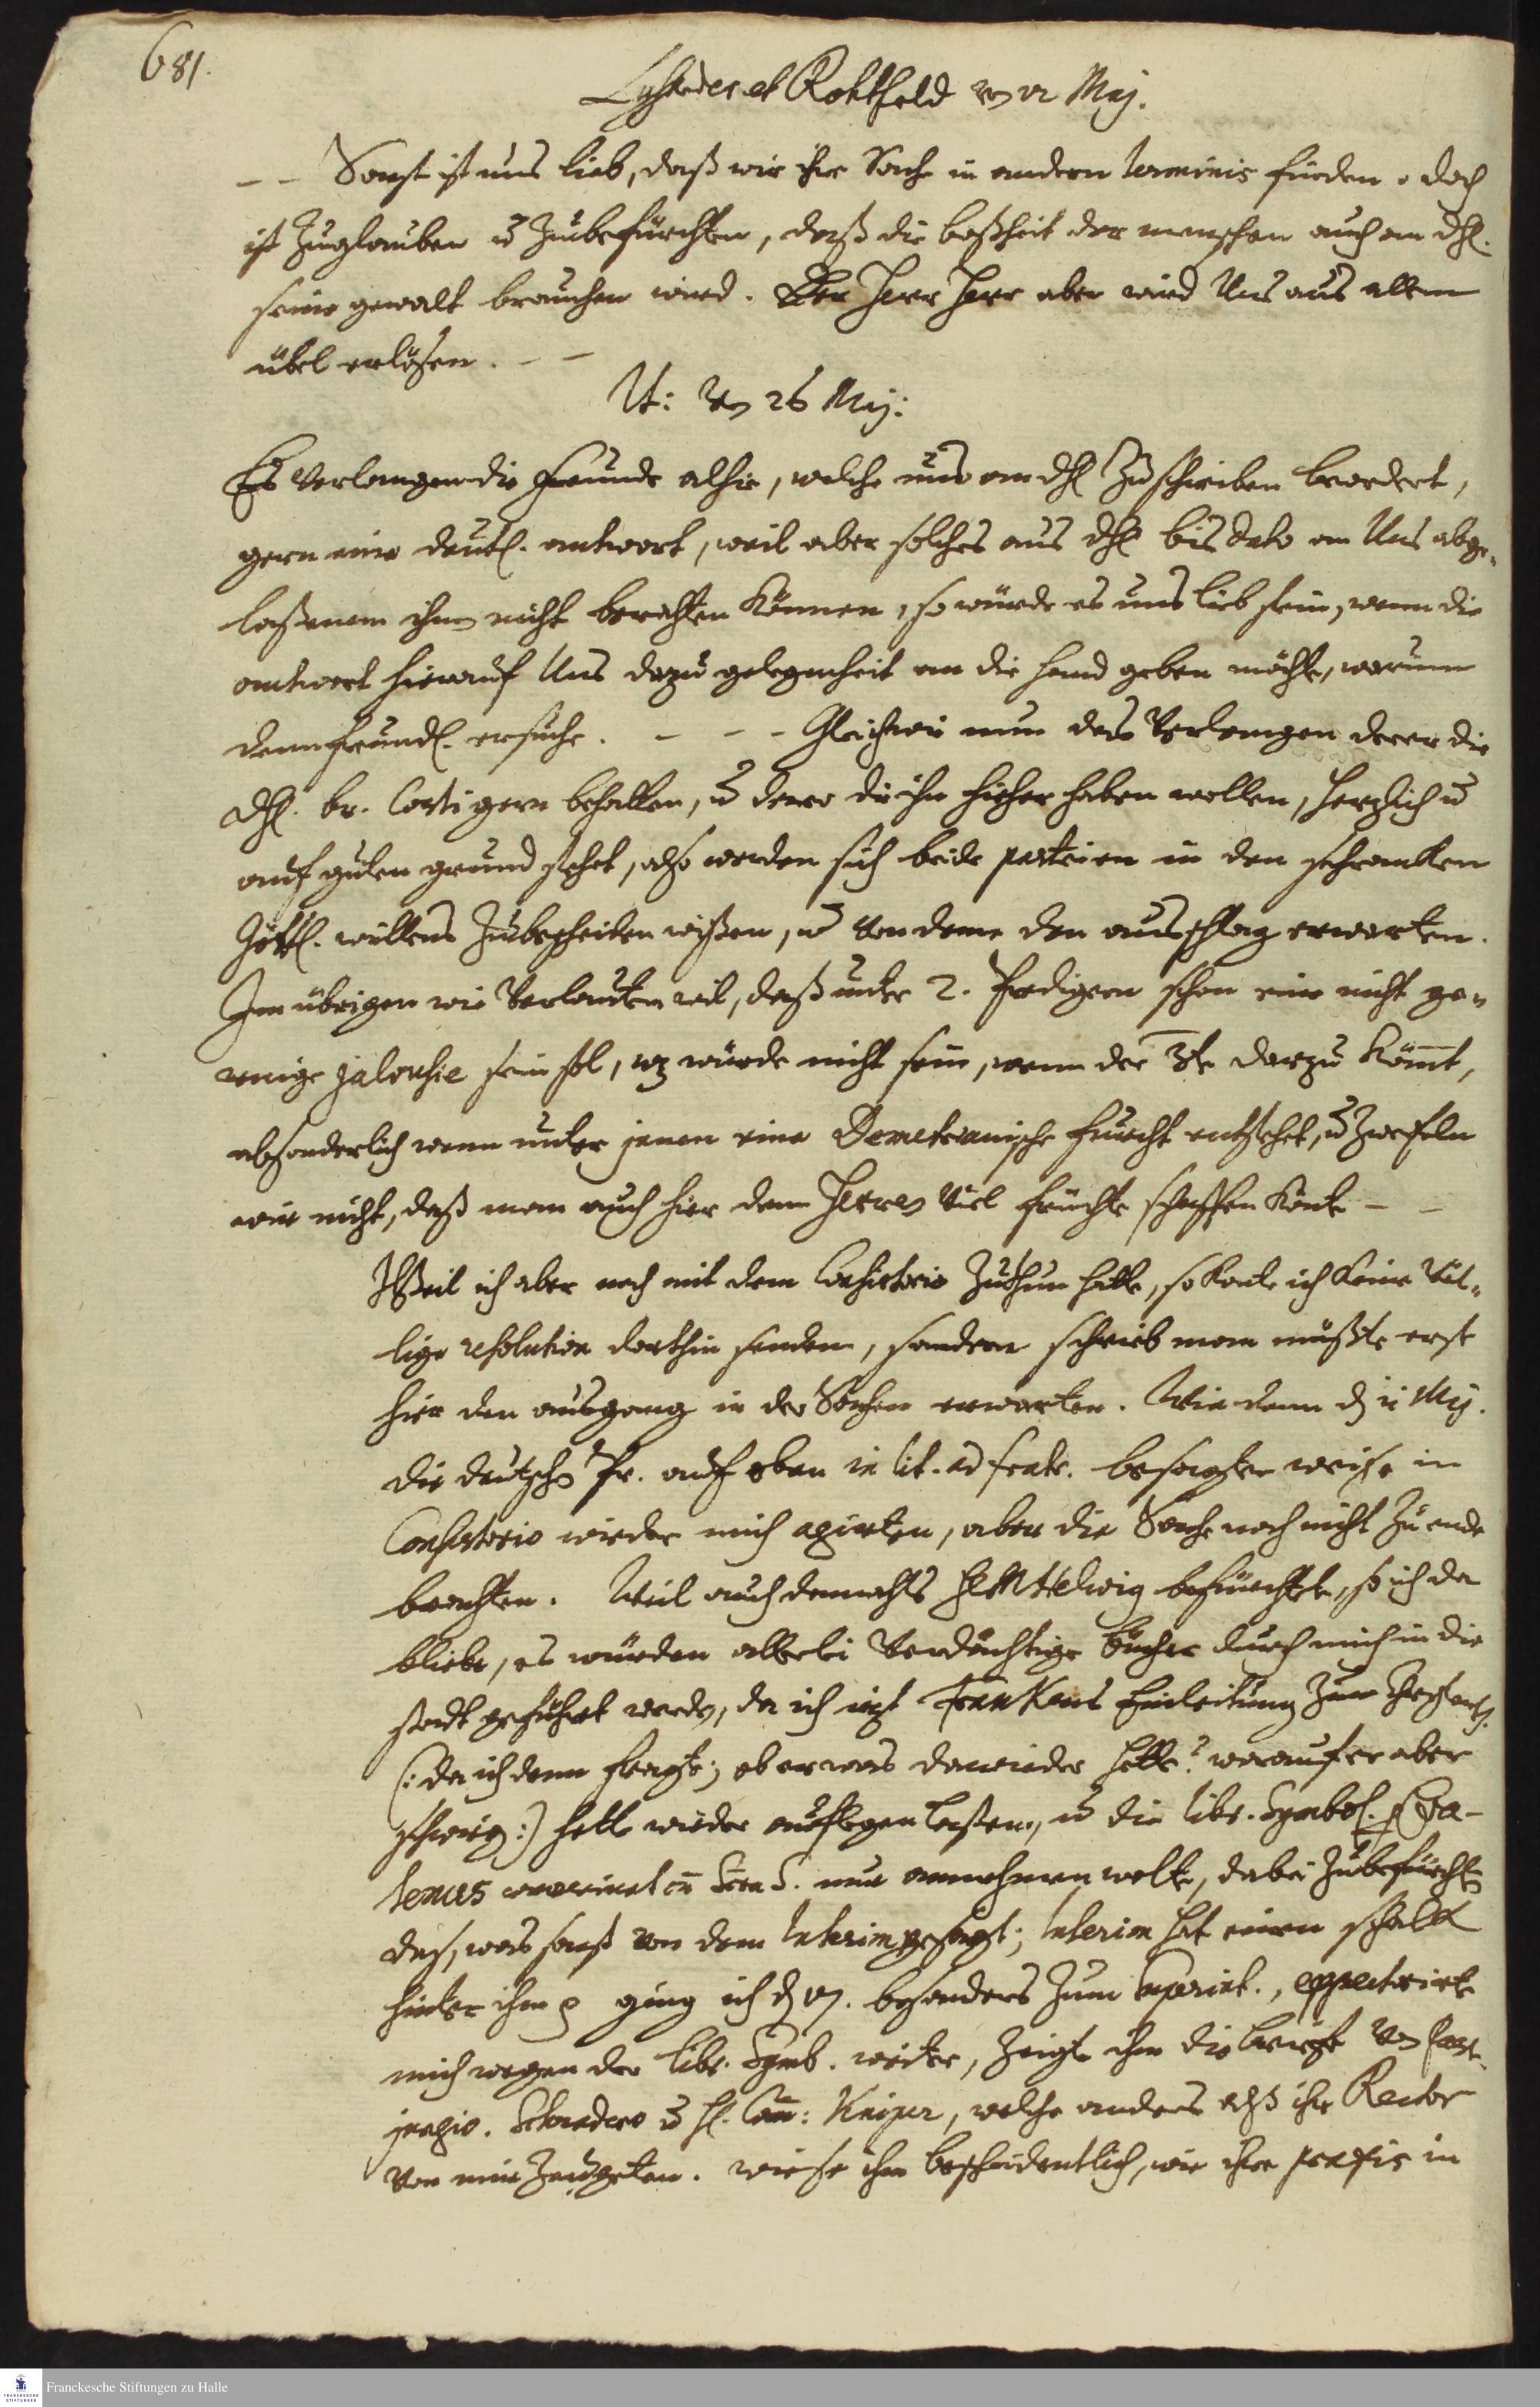 681.
et Rohtfeld vom Maj.
– – Sonst ist uns lieb, daß wir ihre Sache in andern terminis finden, doch
ist zuglauben u zubefürchten, daß die boßheit der menschen auch an dHl.
seine gewalt brauchen wird. Der Herr Herr aber wird Uns aus allem
übel erlösen. – –
It: vom 26 Maj:
Es Verlangen die freunde alhie, welche uns an dHl zuschreiben beordert,
gern eine deutl. antwort, weil aber solches aus dHl bis dato an Uns abge-
laßenem ihm nicht berichten können, so würde es uns lieb sein, wenn die
antwort hierauf Uns dazu gelegenheit an die hand geben möchte, warum
denn freundl. ersuche. – – – Gleichwie nun das Verlangen derer die
dHl. br. gern behalten, u derer die ihn hieher haben wollen, herzlich u
auf guten grund stehet, also werden sich beide parteien in den schrancken
Göttl. willens zubescheiden wißen, u von deme den ausschlag erwarten.
Im übrigen wie Verlauten wil, daß unter 2. Predigern schon eine nicht ge-
ringe jalousie sein sol, wz würde nicht sein, wenn der 3te darzu kömt,
absonderlich wenn unter jenen eine Demetrianische furcht entstehet, u zweifeln
wir nicht, daß man auch hier dem Herren viel früchte schaffen könte – –
Weil ich aber noch mit dem Consistorio zuthun hatte, so konte ich keine völ-
lige resolution dorthin senden, sondern schrieb man müßte erst
hier den ausgang in der Sachen erwarten. Wie denn d 11 Maj.
die deutsche Pr. auf oben in lit. ad fratr. besagter weise in
Consistorio wieder mich agirten, aber die Sache noch nicht zu ende
brachten. Weil auch damahls H M Helwig befürchtete, so ich da
bliebe, es würden allerlei Verdächtige bücher durch mich in die
stadt geführt werden, da ich itzt Frankens Einleitung zum
(: da ich denn fragte, ob er was darwieder hette? worauf er aber
schwieg:) hette wieder auflegen laßen, u die libr. Symbol. Qua-
tenus cum S. nur annehmen wolte, dabei zubefürchten
das, was sonst von dem Interim gesagt; Interim hat einen schalck
hinter ihm p ging ich d 17. besonders zum Superint.,
mich wegen der libr. Symb. weiter, zeigte ihm die briefe von
Schradero u H. Kniper, welche anders alß ihr Rector
von mir zeugeten. wiese ihm bescheidentlich, wie ihre praxis in
Franckesche Stiftungen zu Halle